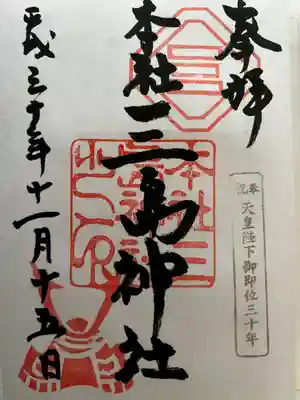 奉拝
奉祝 天皇陛下御即位三十年
本社三島神社
平成三十年十一月十五日